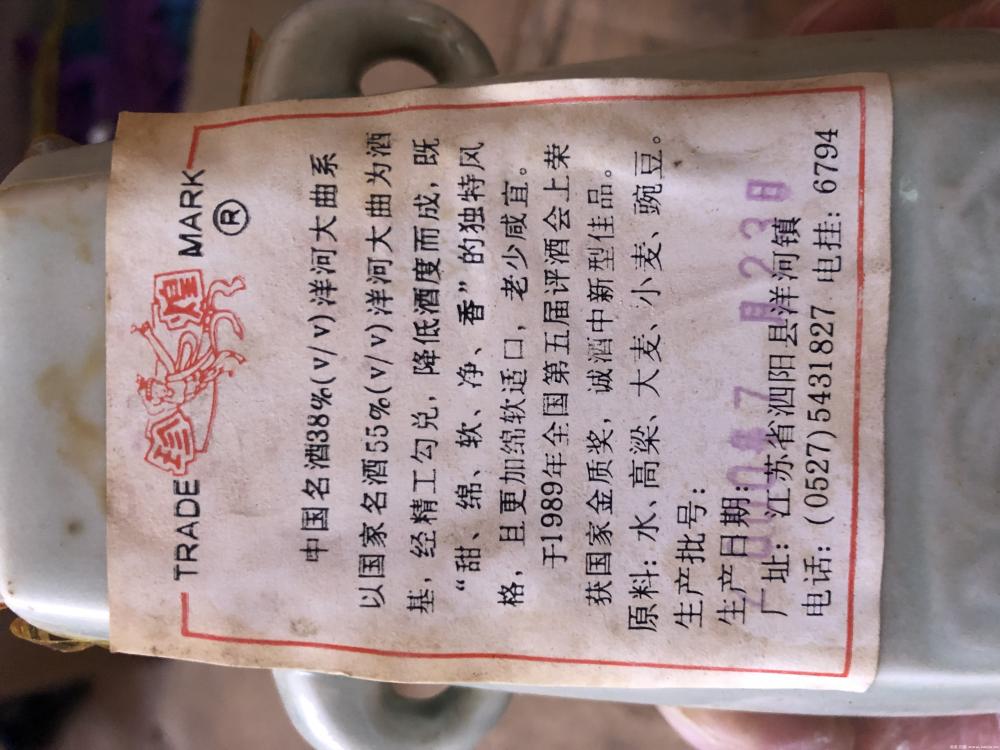 TRADE MARK
®
中国名酒38%(v/v)洋河大曲系
以国家名酒55%(v/v)洋河大曲为酒
基，经精工勾兑，降低酒度而成，既
“甜、绵、软、净、香”的独特风
格，且更加绵软适口，老少咸宜。
于1989年全国第五届评酒会上荣
获国家金质奖，诚酒中新型佳品。
原料：水、高粱、大麦、小麦、豌豆。
生产批号：
生产日期：
7月23日
厂址：江苏省泗阳县洋河镇
电话：(0527)5431827 电挂：6794